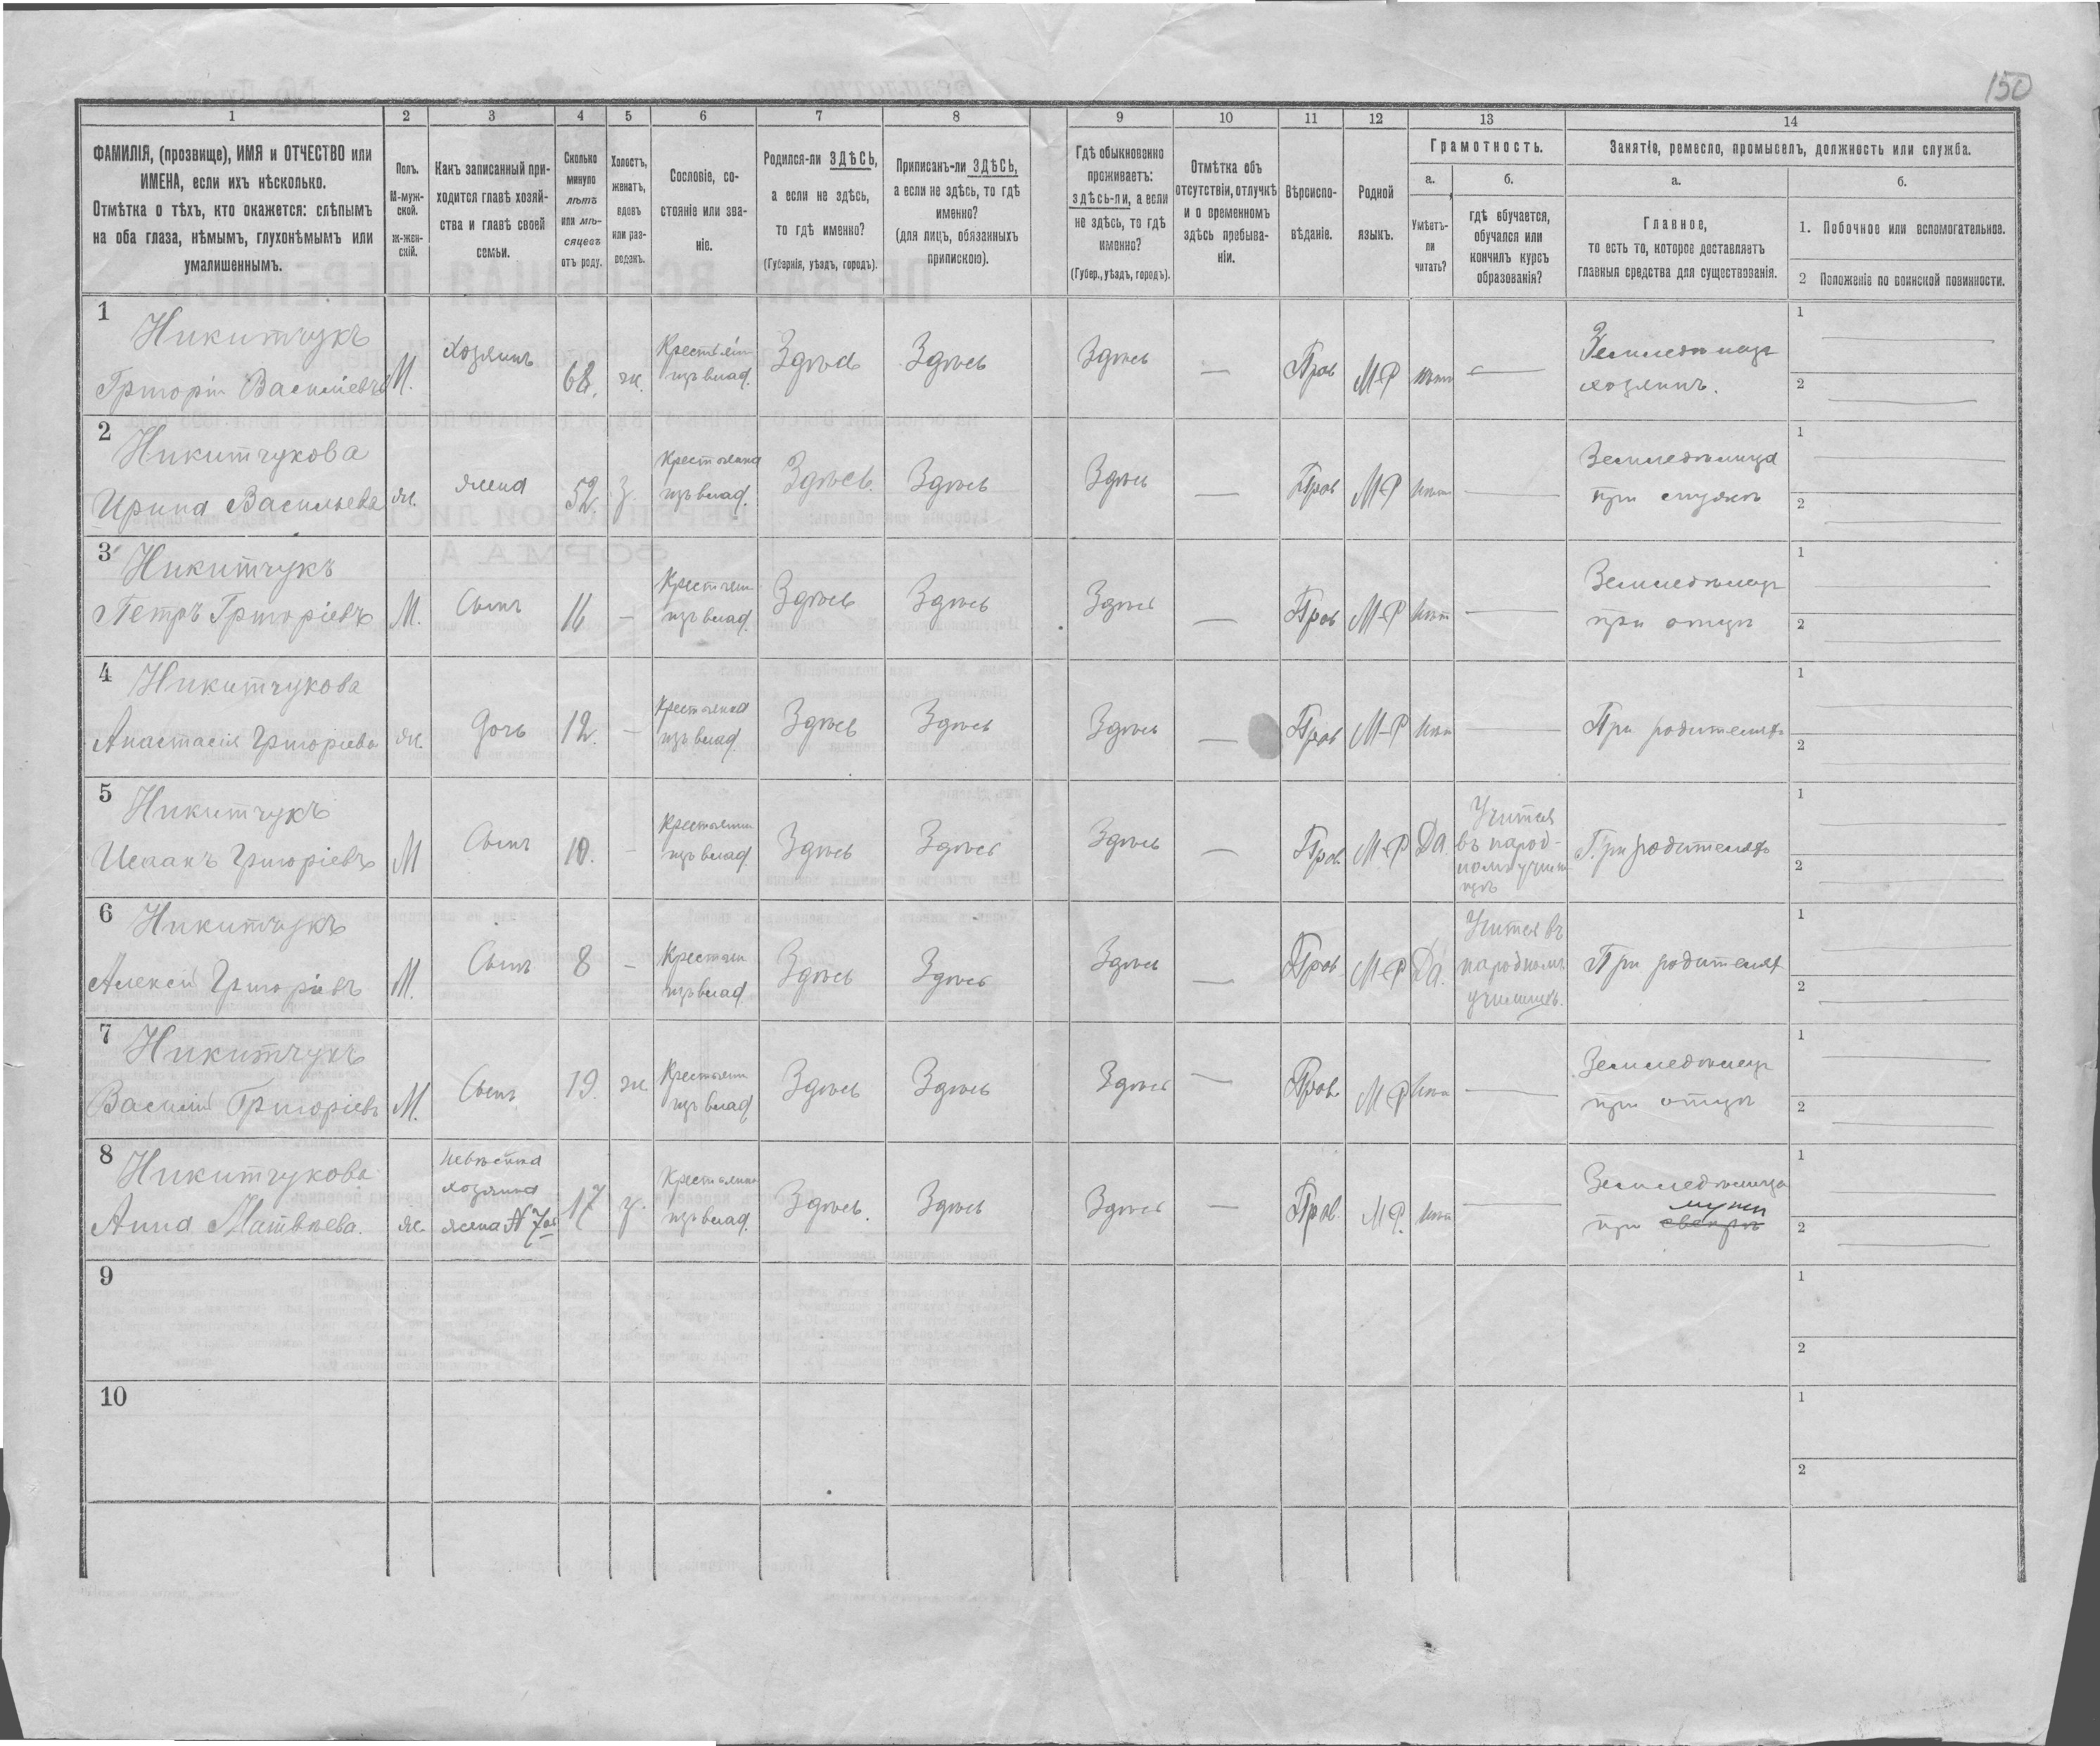 150
1 2 3 4 5 6 7 8 9 10 11 12 13 14
ФАМИЛІЯ, (прозвище), ИМЯ и ОТЧЕСТВО или
ИМЕНА, если ихъ нѣсколько.
Отмѣтка о тѣхъ, кто окажется: слѣпымъ
на оба глаза, нѣмымъ, глухонѣмымъ или
умалишеннымъ.
Полъ.
М-муж-
ской.
ж-жен-
скій.
Какъ записанный при-
ходится главѣ хозяй-
ства и главѣ своей
семьи.
Сколько
минуло
лѣтъ
или мѣ-
сяцевъ
отъ роду.
Холостъ,
женатъ,
вдовъ
или раз-
веденъ.
Сословіе, со-
стояніе или зва-
ніе.
Родился-ли ЗДѢСЬ,
а если не здѣсь,
то гдѣ именно?
(Губернія, уѣздъ, городъ).
Приписанъ-ли ЗДѢСЬ,
а если не здѣсь, то гдѣ
именно?
(для лицъ, обязанныхъ
припискою).
Гдѣ обыкновенно
проживаетъ:
здѣсь-ли, а если
не здѣсь, то гдѣ
именно?
(Губер., уѣздъ, городъ).
Отмѣтка объ
отсутствіи, отлучкѣ
и о временномъ
здѣсь пребыва-
ніи.
Вѣроиспо-
вѣданіе.
Родной
языкъ.
Грамотность.
а.
Умѣетъ-
ли
читать?
б.
гдѣ обучается,
обучался или
кончилъ курсъ
образованія?
Занятіе, ремесло, промыселъ, должность или служба.
а.
Главное,
то есть то, которое доставляетъ
главныя средства для существованія.
б.
1. Побочное или вспомогательное.
2 Положеніе по воинской повинности.
1
Никитчукъ
Григорій Василіевъ
М.
Хозяинъ
68.
ж.
Крестьян
изъ влад.
Здѣсь
Здѣсь
Здѣсь
—
Прав
М-Р
нѣтъ
—
Земледѣлецъ
хозяинъ.
1
2
2
Никитчукова
Ирина Васильева
ж.
жена
52.
з.
Крестьянка
изъ влад.
Здѣсь.
Здѣсь
Здѣсь
—
Прав
М-Р
нѣтъ
—
Земледѣлица
при мужѣ
1
2
3
Никитчукъ
Петръ Григоріевъ
М.
Сынъ
16
—
Крестьян
изъ влад.
Здѣсь
Здѣсь
Здѣсь
—
Прав
М-Р
нѣт
—
Земледѣлецъ
при отцѣ
1
2
4
Никитчукова
Анастасія Григоріева
ж.
Дочь
12.
—
Крестьянка
изъ влад.
Здѣсь
Здѣсь
Здѣсь
—
Прав
М-Р
нѣт
—
При родителях
1
2
5
Никитчукъ
Исаакъ Григоріевъ
М
Сынъ
10.
—
Крестьянин
изъ влад.
Здѣсь
Здѣсь
Здѣсь
—
Прав.
М-Р
Да
Учится
въ народ-
номъ учили
щѣ
При родителях
1
2
6
Никитчукъ
Алексій Григоріевъ
М.
Сынъ
8
—
Крестьян
изъ влад.
Здѣсь
Здѣсь
Здѣсь
—
Прав
М-Р
Да.
Учится въ
народномъ
училищѣ.
При родителях
1
2
7
Никитчукъ
Василій Григоріевъ
М.
Сынъ
19.
ж
Крестьянин
изъ влад.
Здѣсь
Здѣсь
Здѣсь
—
Прав.
М-Р
нѣт
—
Земледѣлецъ
при отцѣ
1
2
8
Никитчукова
Анна Матвѣева.
ж.
невѣстка
хозяина
жена N 7го
17
з.
Крестьянка
изъ влад.
Здѣсь.
Здѣсь
Здѣсь
—
Прав.
М-Р.
нѣт
—
Земледѣлица
мужи
при свекрѣ
1
2
9
1
2
10
1
2